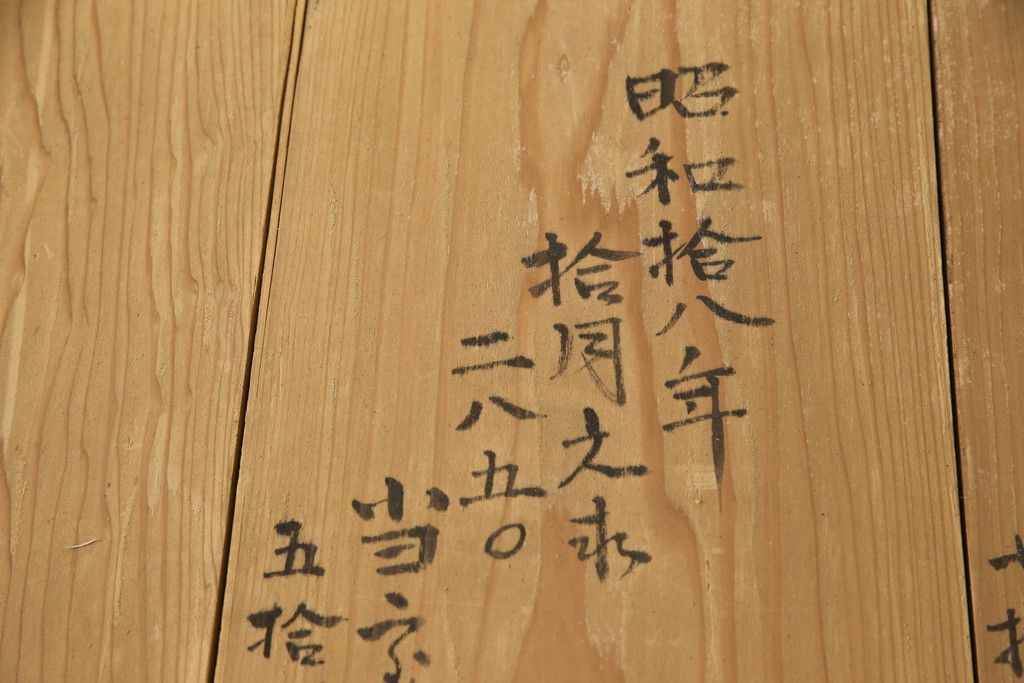 昭和拾八年
拾月之求
二八五〇
当
五拾